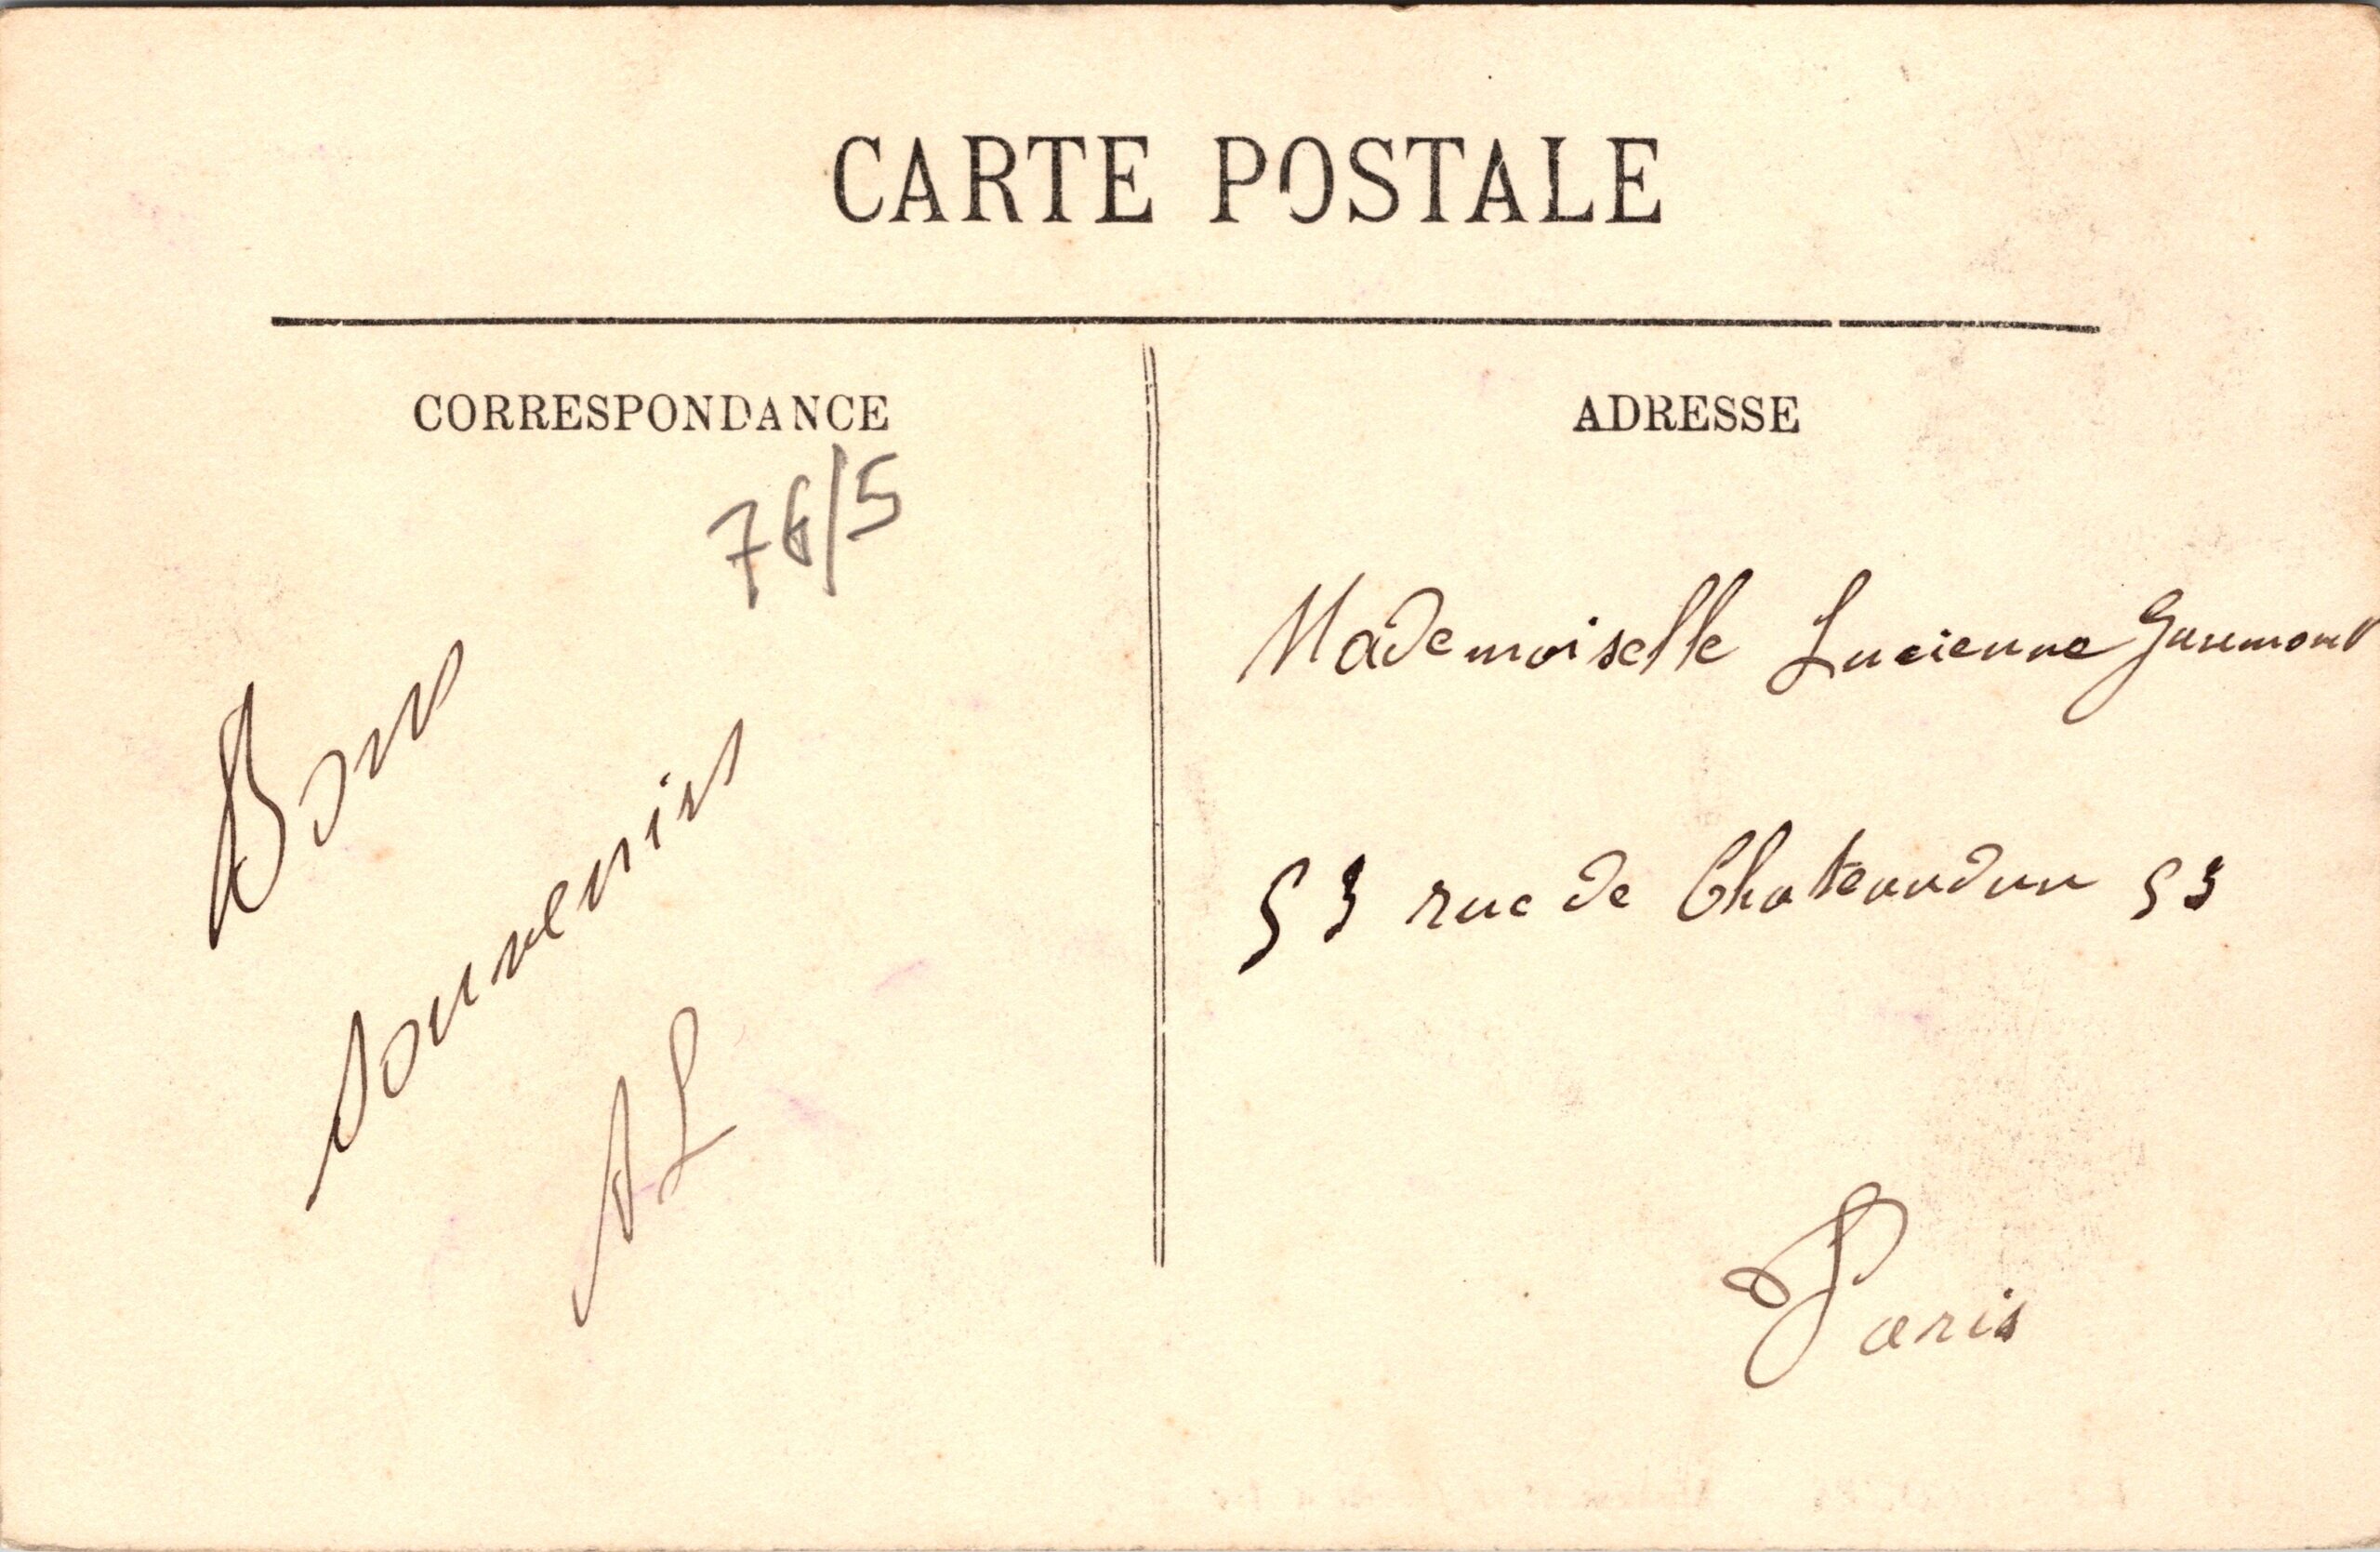 CARTE POSTALE
CORRESPONDANCE
76/5
Bons
souvenirs
AL
ADRESSE
Mademoiselle Lucienne Gaumont
53 rue de Chateaudun 53
Paris